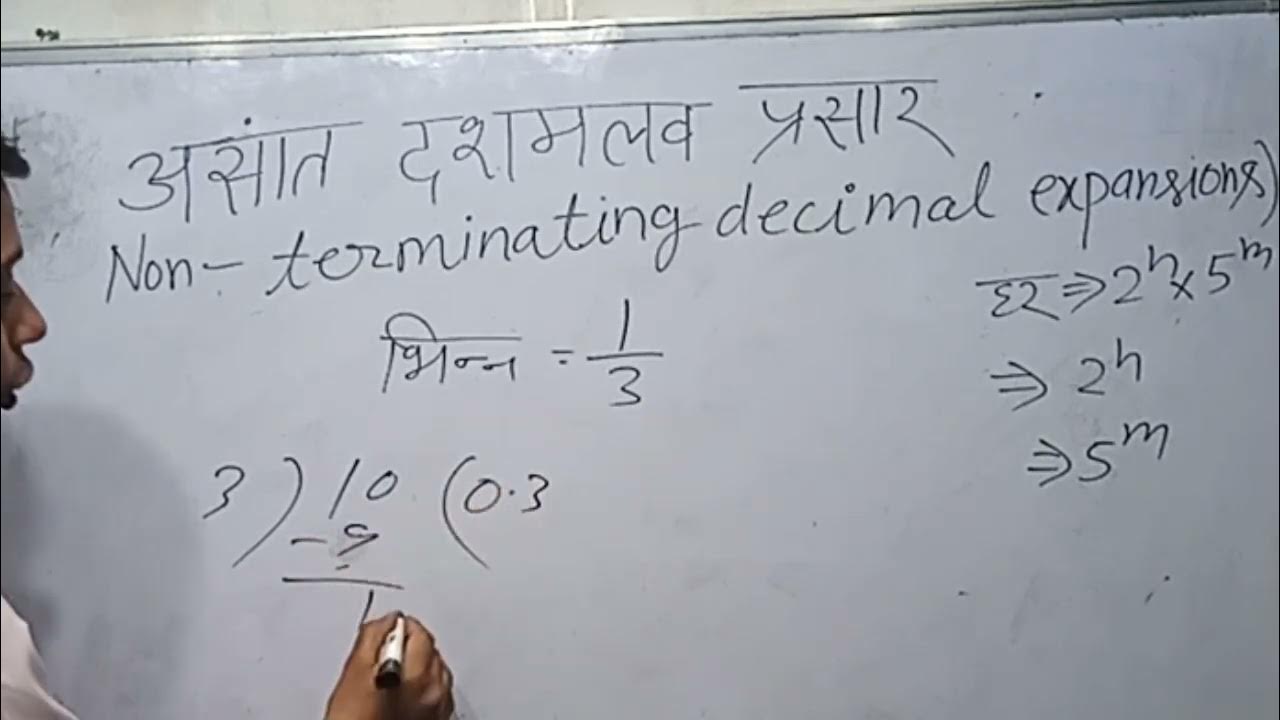 असांत दशमलव प्रसार
Non-terminating decimal expansions)
हर ⇒ 2ⁿ × 5ᵐ
भिन्न = 1/3
⇒ 2ⁿ
⇒ 5ᵐ
3 ) 10 ( 0.3
- 9
1